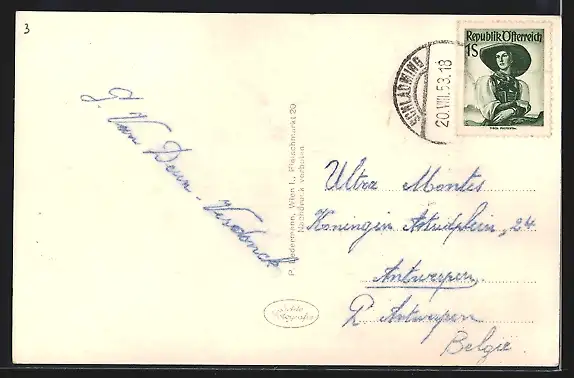 3
Republik Österreich
1S
SCHLADMING
20.VIII.53.18
J. Van Deun - Verdonck
P. Ledermann, Wien I., Fleischmarkt 20
Nachdruck verboten
Ultra Montes
Koningin Astridplein, 24
Antwerpen
P. Antwerpen
België.
Echte
Fotografie